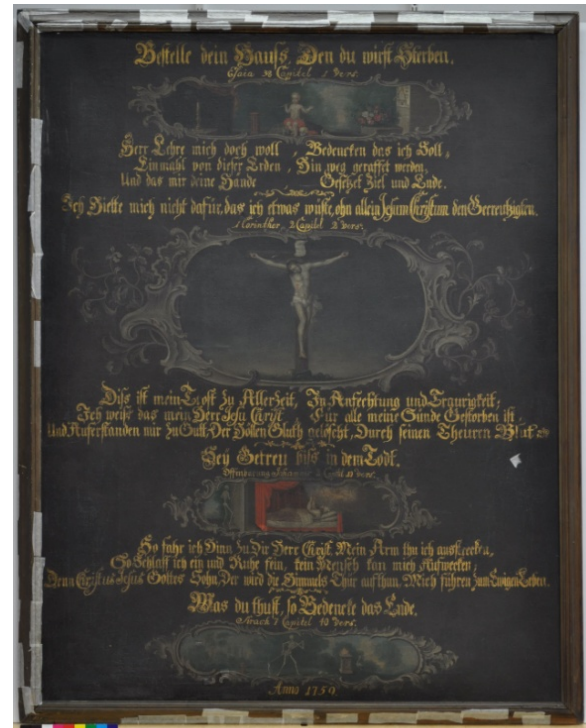 Bestelle dein Hauß, Den du wirst Sterben.
Esaia 38 Capitel 1 Vers.
Herr Lehre mich doch woll, Bedencken das ich Soll,
Einmahl von dieser Erden, Hin weg geraffet werden,
Und das mir deine Hande Gesetzet Ziel und Ende.
Ich Hielte mich nicht dafür, das ich etwas wüste, ohn allein Jesum Christum den Gecreutzigten.
1 Corinther, 2 Capitel 2 Vers.
Diss ist mein Trost zu AllerZeit, In Anfechtung und Traurigkeit;
Ich weiß das mein Herr Jesu Christ, Für alle meine Sünde Gestorben ist
Und Auferstanden mir zu Gutt, Der Höllen Gluth gelöscht, Durch seinen Theuren Blut
Sey Getreu biß in dem Todt.
2 Capitel 10 Vers.
So fahr ich Hinn zu Dir Herr Christ Mein Arm thu ich ausstrecken,
So Schlaff ich ein und Ruhe fein, kein Mensch kan mich Aufwecken;
Denn Christus Jesus Gottes Sohn, Der wird die Himmels Thür auf thun, Mich führen zum Ewigen Leben.
Was du thust, so Bedencke das Ende.
Sirach 7 Capitel 40 Vers.
Anno 1759.